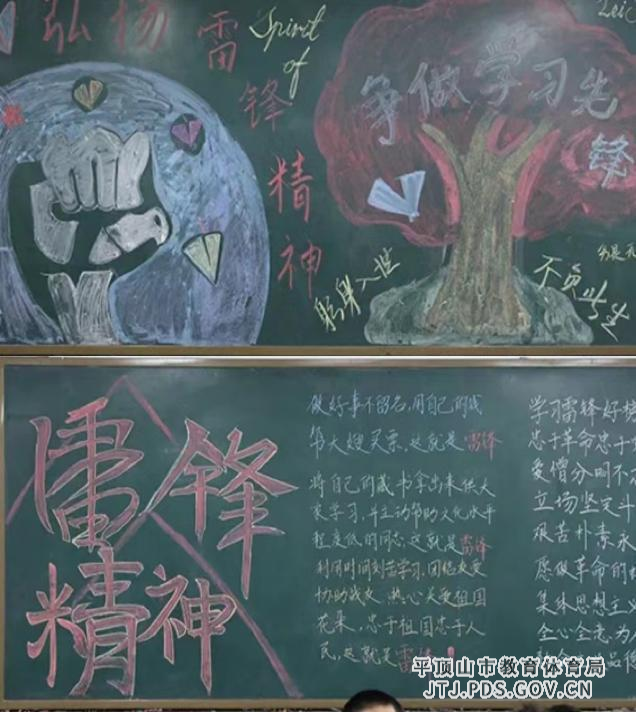 弘扬雷锋精神
Spirit
of
争做学习先锋
躬身入世
不负
雷锋
精神
做好事不留名，用自己的钱
帮大嫂买票，这就是雷锋
将自己的藏书拿出来供大
家学习，并主动帮助文化水平
程度低的同志，这就是雷锋
利用时间刻苦学习，团结友爱
协助战友，热心关爱祖国
花朵，忠于祖国忠于人
民，这就是雷锋！
学习雷锋好榜
忠于革命忠于
爱憎分明不
立场坚定斗
艰苦朴素永
愿做革命的
集体思想主义
全心全意为
平顶山市教育体育局
JTJ.PDS.GOV.CN